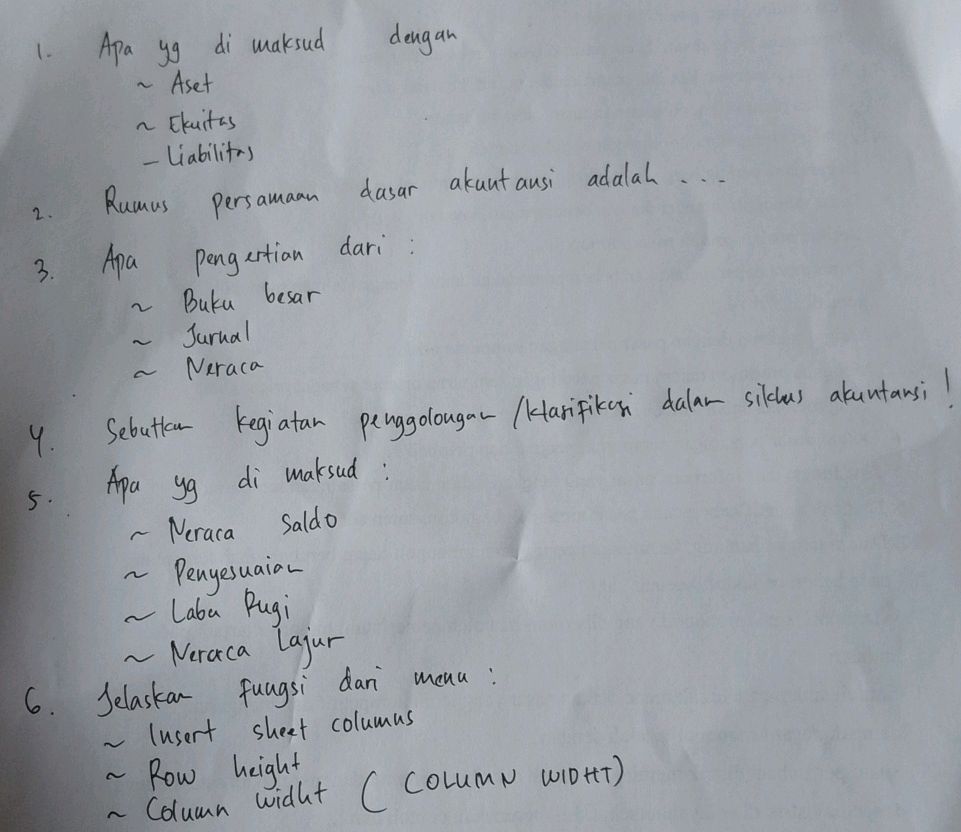 1. Apa yg di maksud dengan
~ Aset
~ Ekuitas
- Liabilitas
2. Rumus persamaan dasar akuntansi adalah ....
3. Apa pengertian dari :
~ Buku besar
~ Jurnal
~ Neraca
4. Sebutkan kegiatan penggolongan / klarifikasi dalam siklus akuntansi !
5. Apa yg di maksud :
~ Neraca Saldo
~ Penyesuaian
~ Laba Rugi
~ Neraca Lajur
6. Jelaskan fungsi dari menu :
~ Insert sheet columns
~ Row height
~ Column widht ( COLUMN WIDHT)